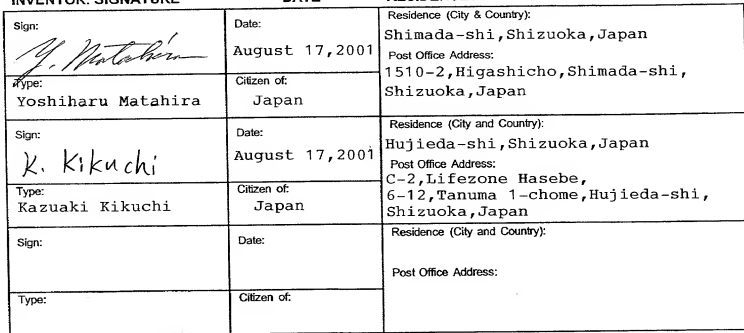 INVENTOR: SIGNATURE DATE
Sign:
Y. Matahira
Date:
August 17,2001
Residence (City & Country):
Shimada-shi,Shizuoka,Japan
Post Office Address:
1510-2,Higashicho,Shimada-shi,
Shizuoka,Japan
Type:
Yoshiharu Matahira
Citizen of:
Japan
Sign:
K. Kikuchi
Date:
August 17,2001
Residence (City and Country):
Hujieda-shi,Shizuoka,Japan
Post Office Address:
C-2,Lifezone Hasebe,
6-12,Tanuma 1-chome,Hujieda-shi,
Shizuoka,Japan
Type:
Kazuaki Kikuchi
Citizen of:
Japan
Sign:
Date:
Residence (City and Country):
Post Office Address:
Type:
Citizen of: